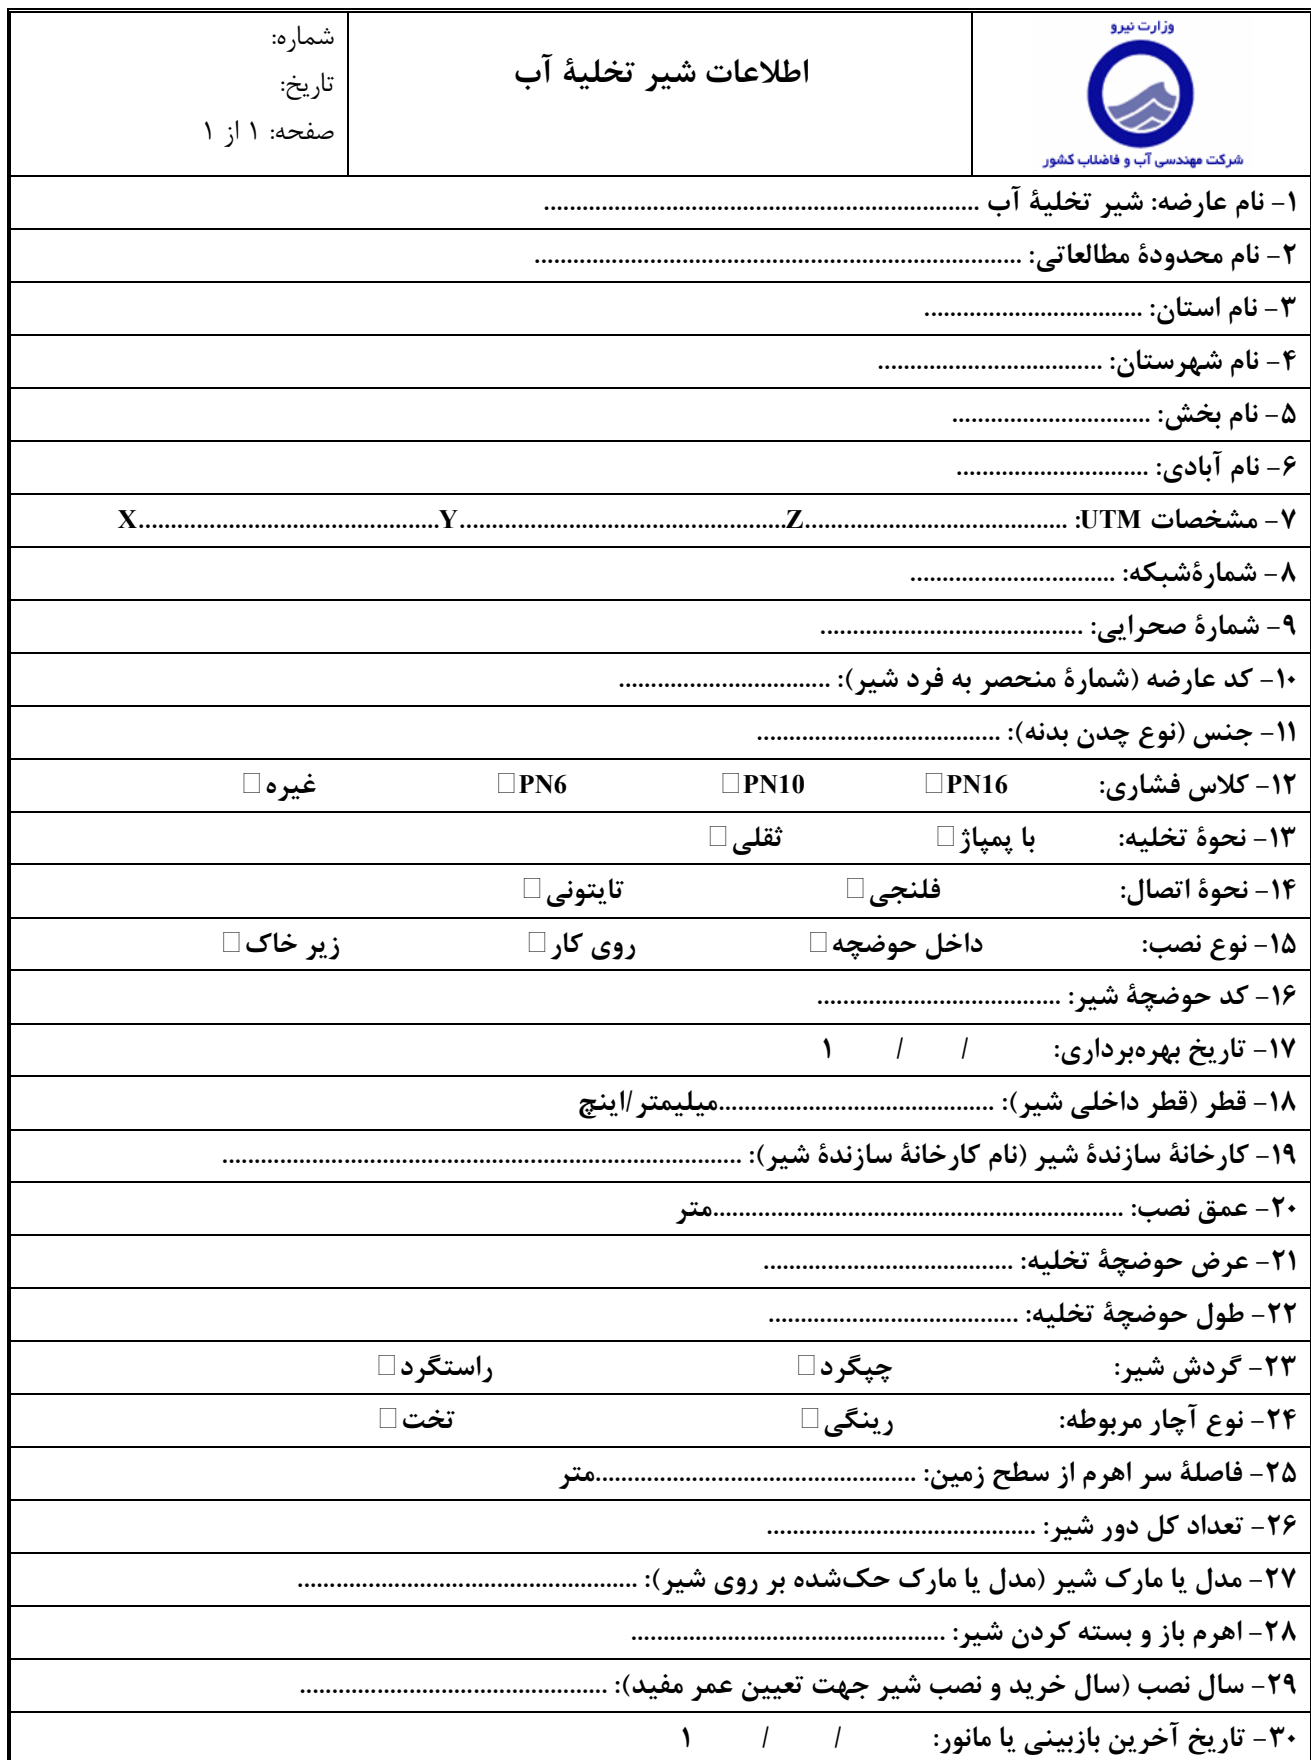 وزارت نیرو
شرکت مهندسی آب و فاضلاب کشور
اطلاعات شیر تخلیهٔ آب
شماره:
تاریخ:
صفحه: ۱ از ۱
۱- نام عارضه: شیر تخلیهٔ آب ....................................................................
۲- نام محدودهٔ مطالعاتی: ............................................................................
۳- نام استان: ..................................
۴- نام شهرستان: ...................................
۵- نام بخش: ...............................
۶- نام آبادی: ..............................
۷- مشخصات UTM: .........................................Z...................................................Y...............................................X
۸- شمارهٔشبکه: ................................
۹- شمارهٔ صحرایی: .........................................
۱۰- کد عارضه (شمارهٔ منحصر به فرد شیر): .................................
۱۱- جنس (نوع چدن بدنه): ......................................
۱۲- کلاس فشاری: PN16□ PN10□ PN6□ غیره□
۱۳- نحوهٔ تخلیه: با پمپاژ□ ثقلی□
۱۴- نحوهٔ اتصال: فلنجی□ تایتونی□
۱۵- نوع نصب: داخل حوضچه□ روی کار□ زیر خاک□
۱۶- کد حوضچهٔ شیر: ......................................
۱۷- تاریخ بهره‌برداری: / / ۱
۱۸- قطر (قطر داخلی شیر): ...........................................میلیمتر/اینچ
۱۹- کارخانهٔ سازندهٔ شیر (نام کارخانهٔ سازندهٔ شیر): .................................................................................
۲۰- عمق نصب: ................................................................متر
۲۱- عرض حوضچهٔ تخلیه: .......................................
۲۲- طول حوضچهٔ تخلیه: .......................................
۲۳- گردش شیر: چپگرد□ راستگرد□
۲۴- نوع آچار مربوطه: رینگی□ تخت□
۲۵- فاصلهٔ سر اهرم از سطح زمین: ..................................................متر
۲۶- تعداد کل دور شیر: ..........................................
۲۷- مدل یا مارک شیر (مدل یا مارک حک‌شده بر روی شیر): .....................................................
۲۸- اهرم باز و بسته کردن شیر: .................................................
۲۹- سال نصب (سال خرید و نصب شیر جهت تعیین عمر مفید): ................................................
۳۰- تاریخ آخرین بازبینی یا مانور: / / ۱